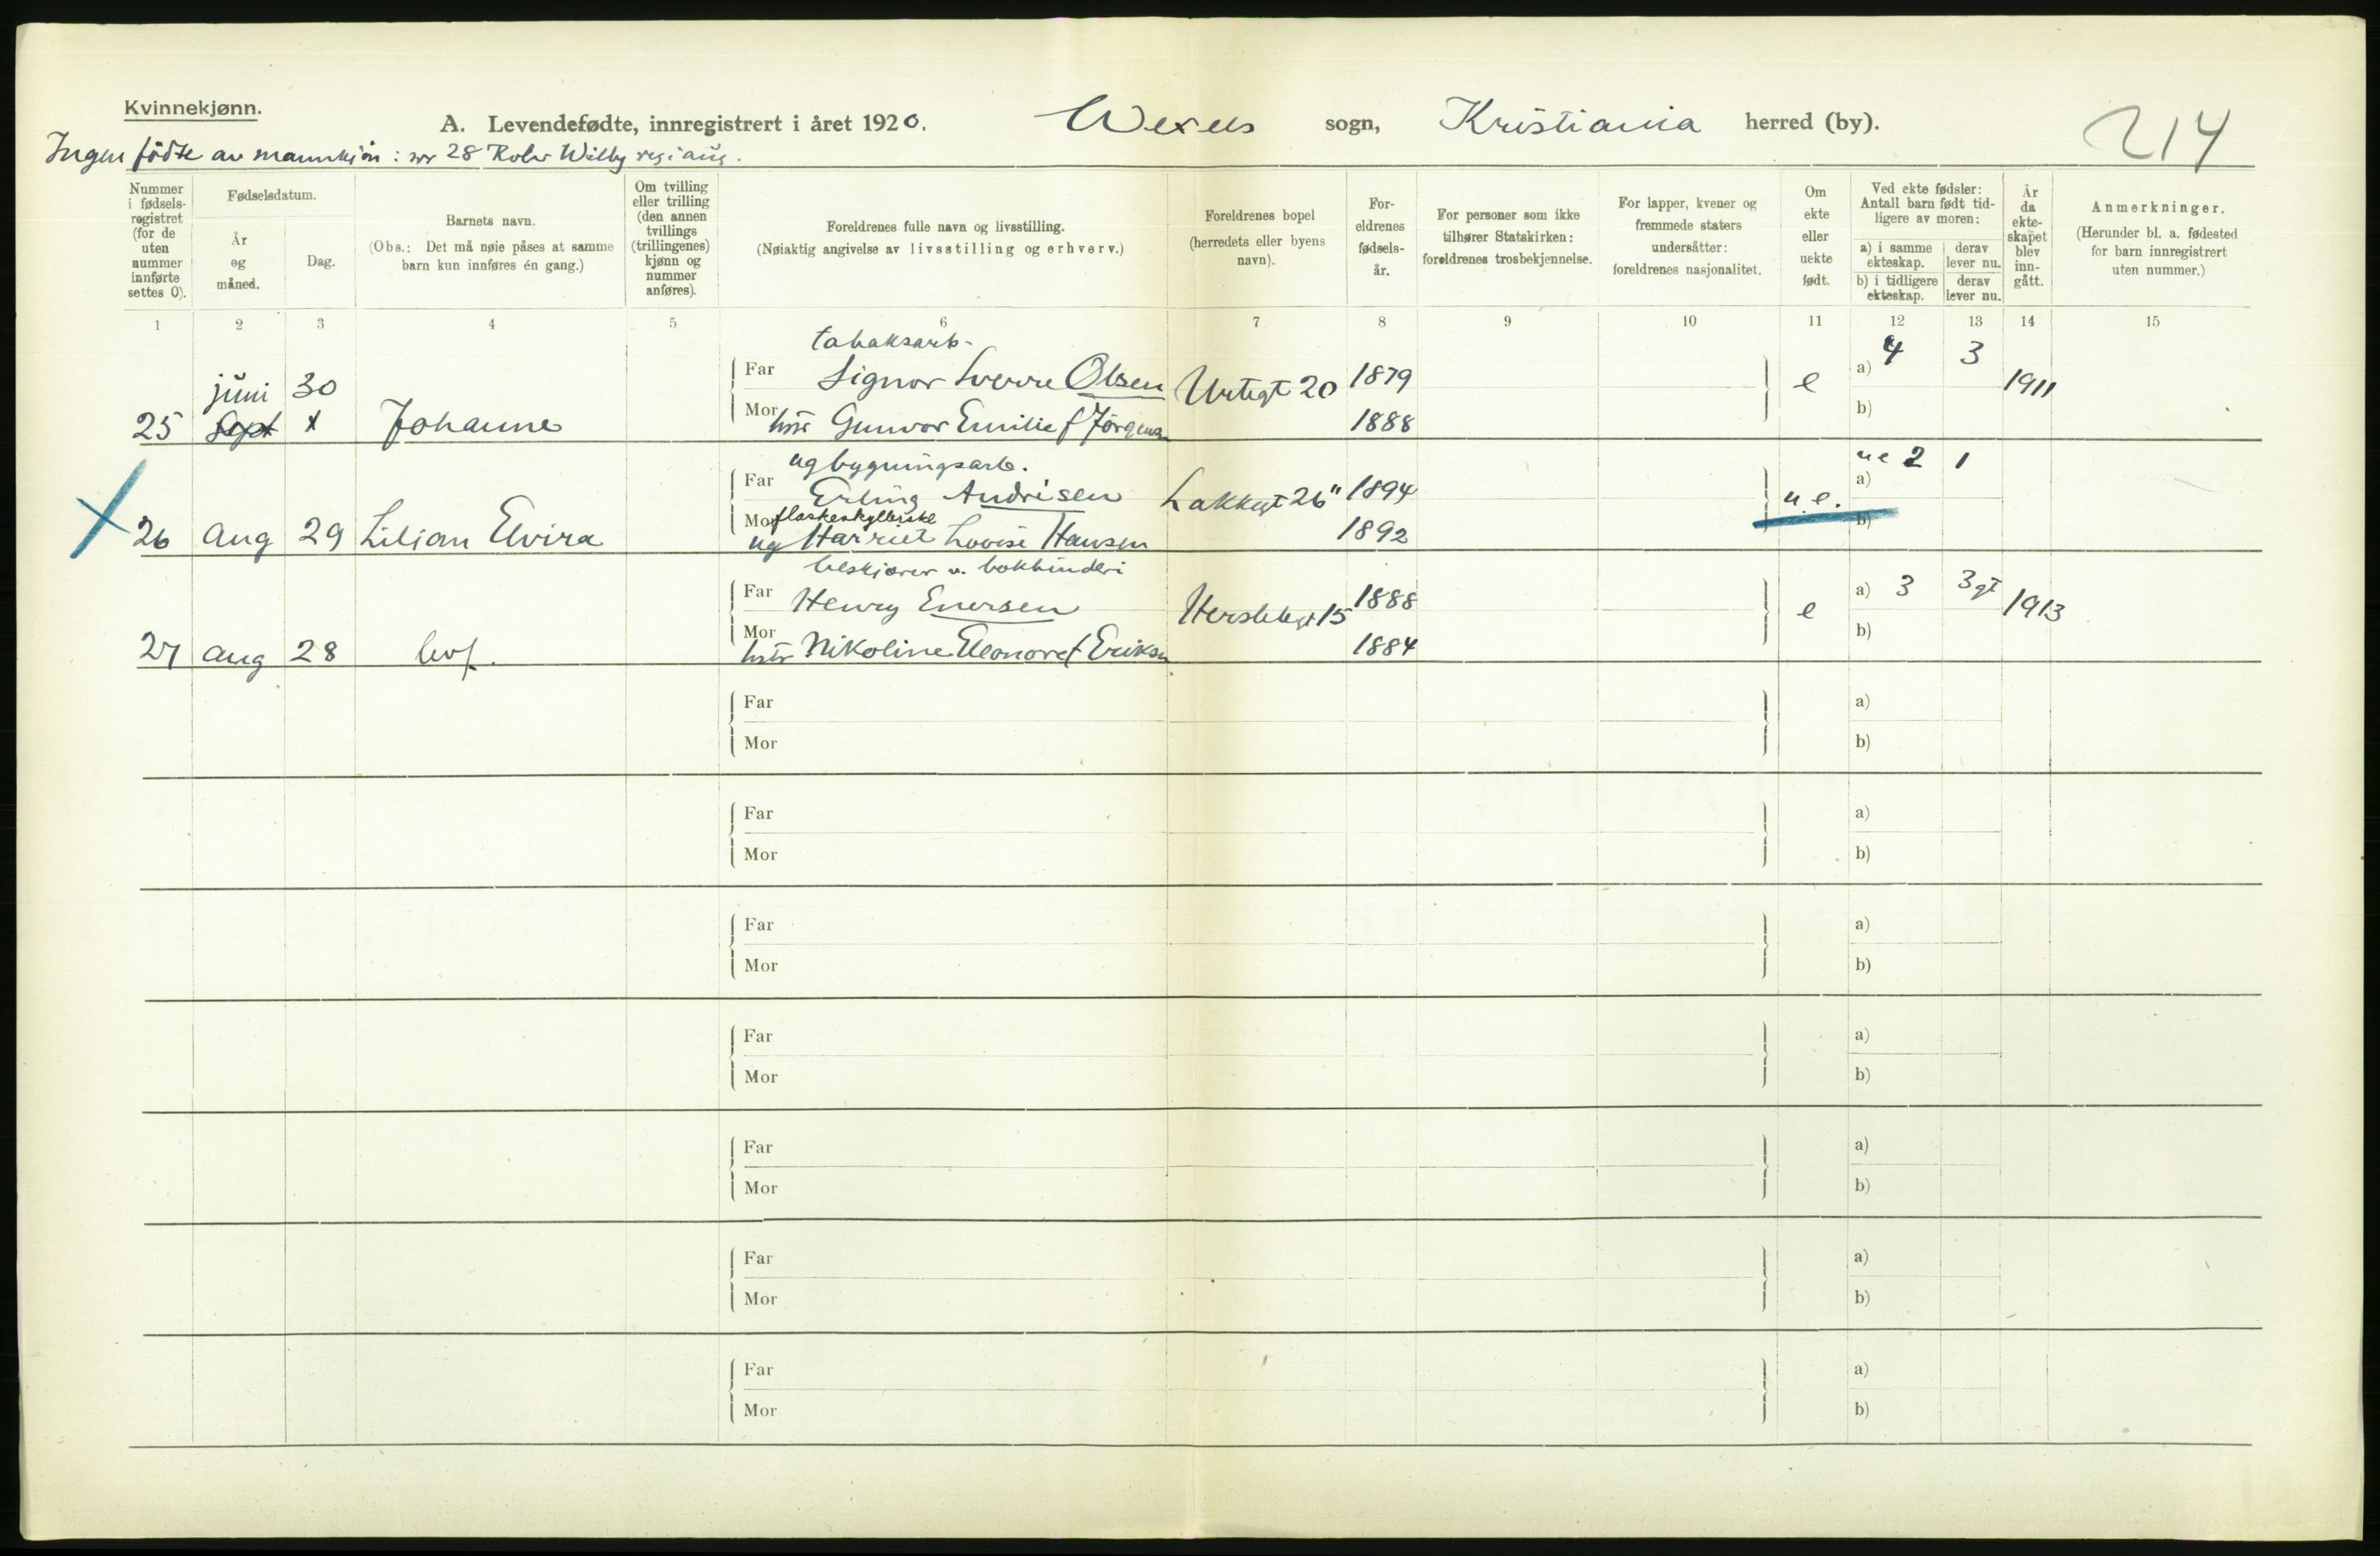 Kvinnekjønn.
A. Levendefødte, innregistrert i året 1920. Wexels sogn, Kristiania herred (by). 214
Ingen födte av mannkjön: nr 28 Rolv Wilby reg i aug.
Nummer i fødselsregistret (for de uten nummer innførte settes 0).
Fødselsdatum.
År og måned.
Dag.
Barnets navn.
(Obs.: Det må nøie påses at samme barn kun innføres én gang.)
Om tvilling eller trilling (den annen tvillings (trillingenes) kjønn og nummer anføres).
Foreldrenes fulle navn og livsstilling.
(Nøiaktig angivelse av livsstilling og erhverv.)
Foreldrenes bopel (herredets eller byens navn).
Foreldrenes fødselsår.
For personer som ikke tilhører Statskirken: foreldrenes trosbekjennelse.
For lapper, kvener og fremmede staters undersåtter: foreldrenes nasjonalitet.
Om ekte eller uekte født.
Ved ekte fødsler: Antall barn født tidligere av moren:
a) i samme ekteskap. derav lever nu.
b) i tidligere ekteskap. derav lever nu.
År da ekteskapet blev inngått.
Anmerkninger.
(Herunder bl. a. fødested for barn innregistrert uten nummer.)
1 2 3 4 5 6 7 8 9 10 11 12 13 14 15
tabaksarb.
juni 30 Far Signor Sverre Olsen Urtegt 20 1879 e a) 4 3 1911
25 Sept X Johanne Mor hstr Gunvor Emilie f Jörgensen 1888 b)
ug bygningsarb. ue 2 1
Far Erling Andrisen Lakkegt 26" 1894 u.e. a)
flaskeskyllerske
26 Aug 29 Lilian Elvira Mor ug Harriet Lovise Hansen 1892 b)
beskjærer v. bokbinderi
Far Henry Enersen Herslebsgt 15 1888 e a) 3 3 gt 1913
27 Aug 28 Mor hstr Nikoline Eleonore f Eriksen 1884 b)
Far a)
Mor b)
Far a)
Mor b)
Far a)
Mor b)
Far a)
Mor b)
Far a)
Mor b)
Far a)
Mor b)
Far a)
Mor b)